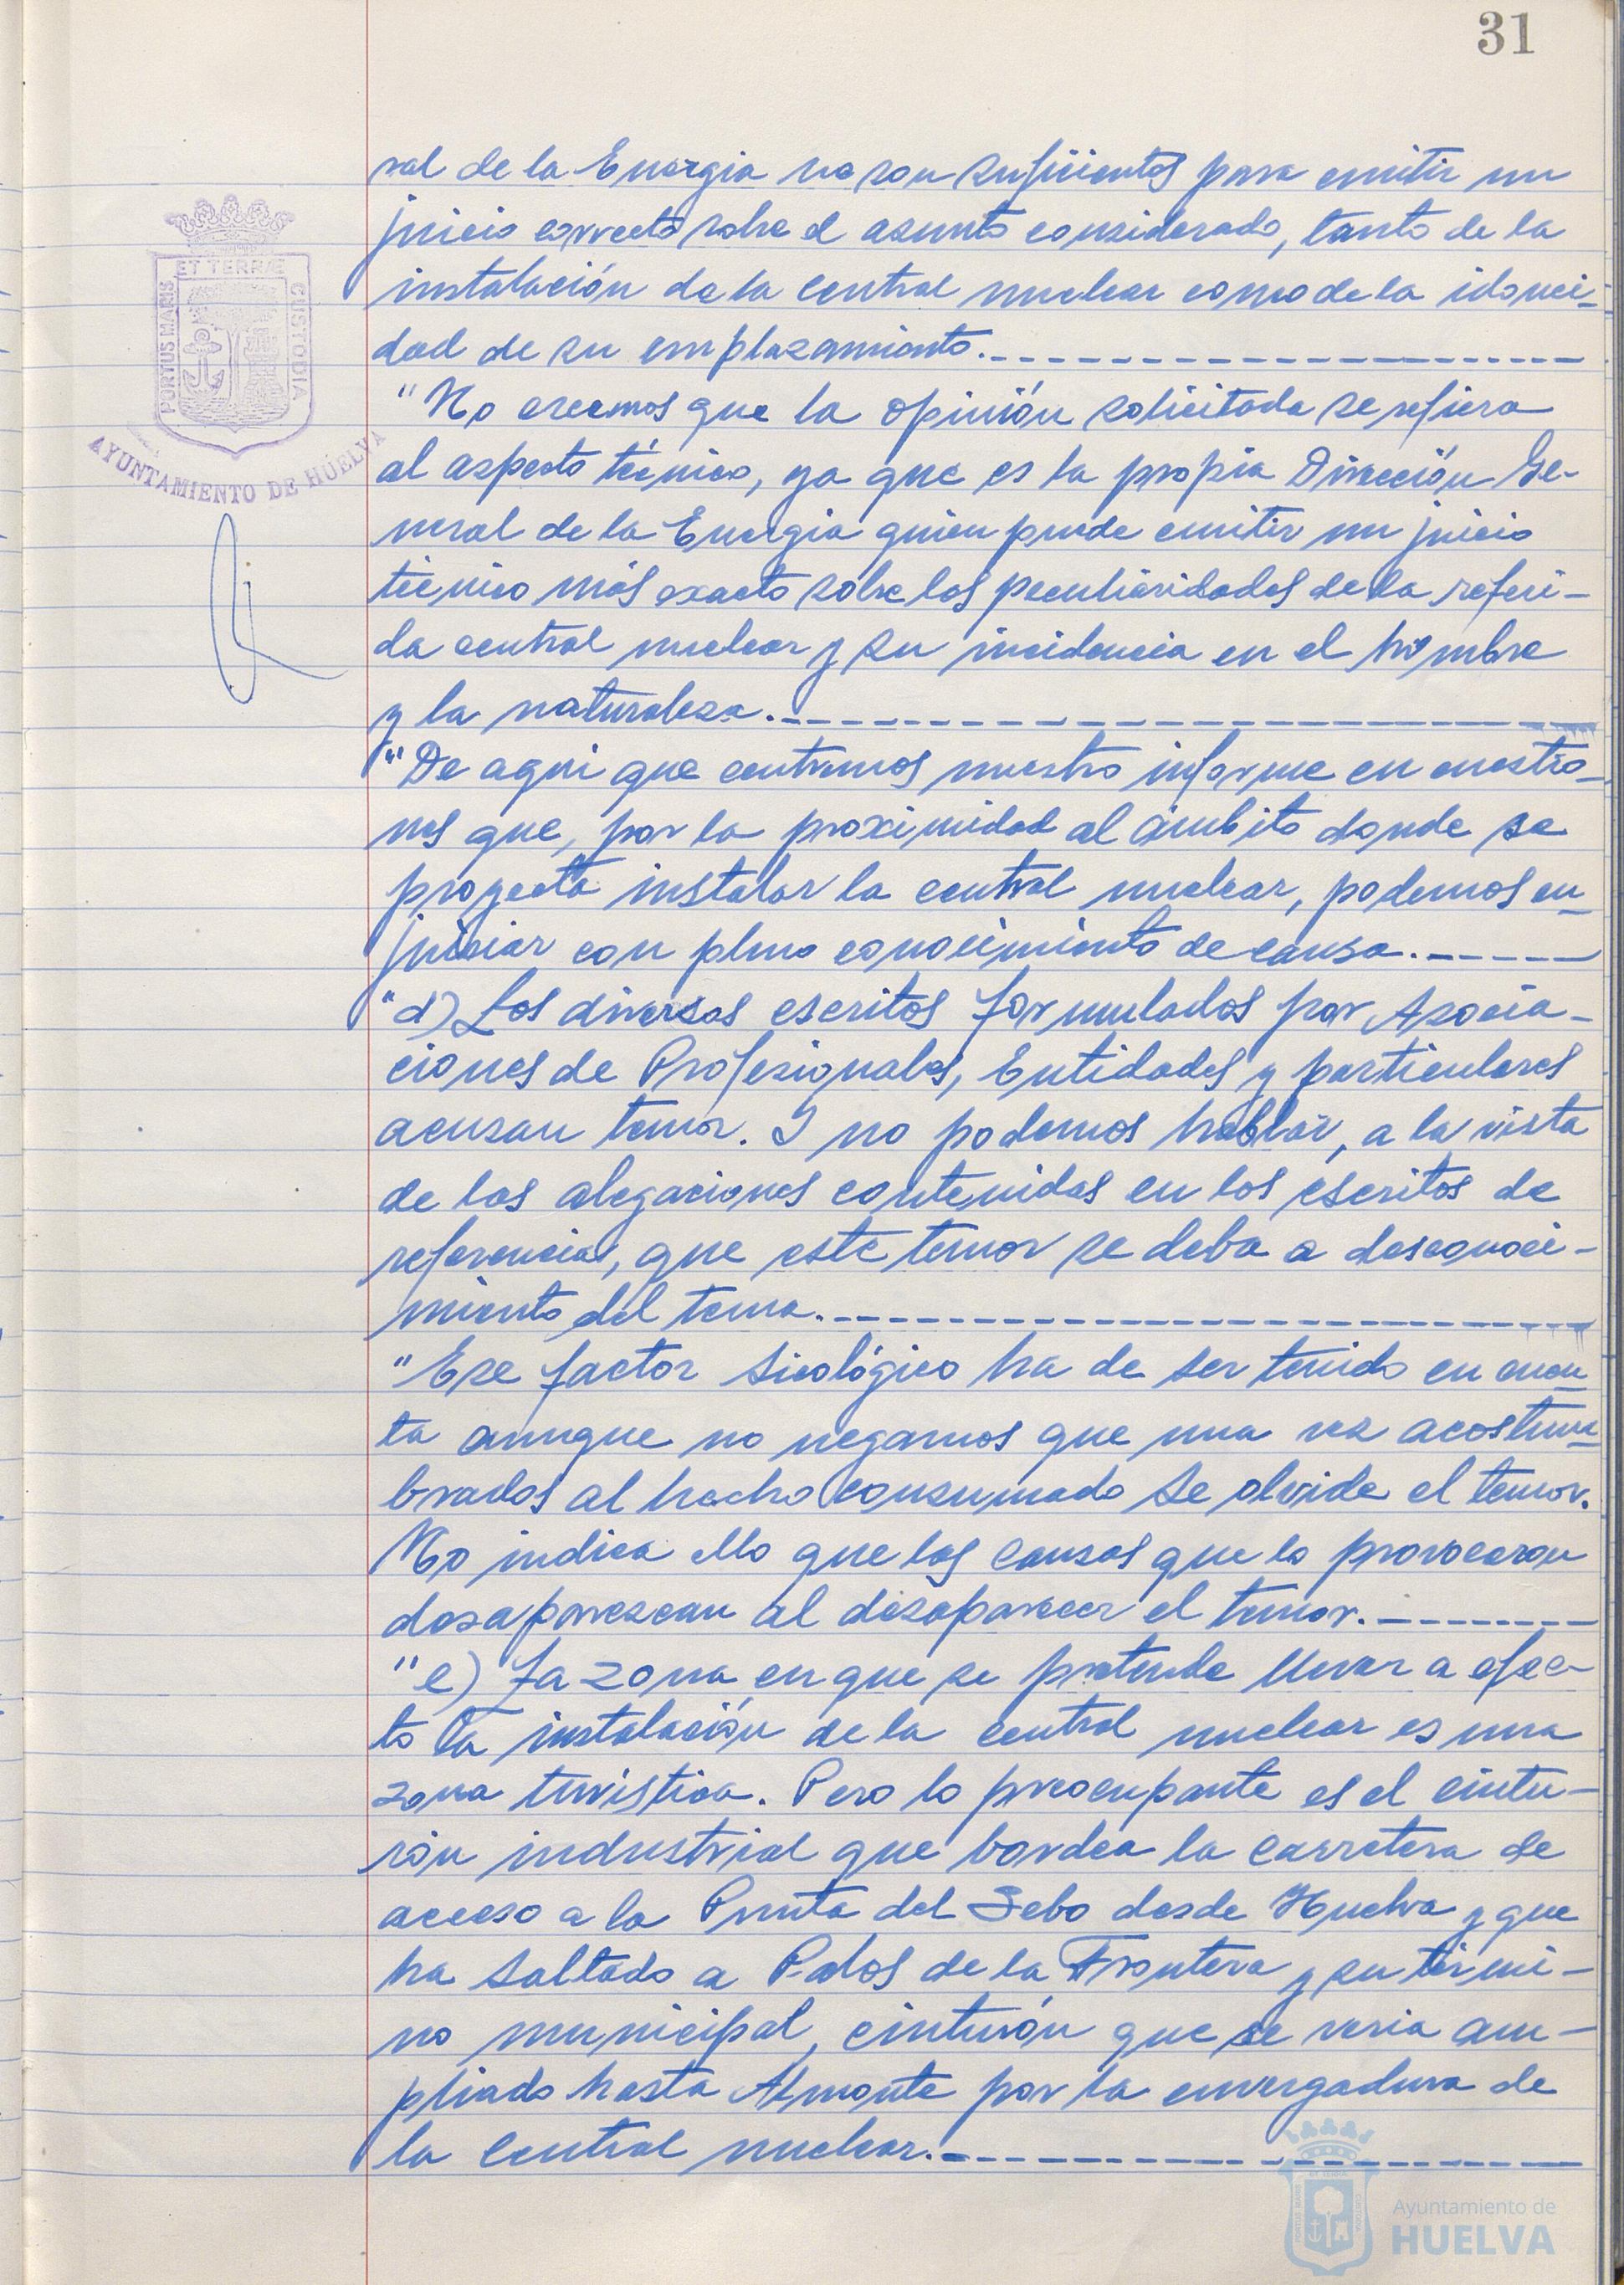 31
ral de la Energia no son suficientes para emitir un
juicio correcto sobre el asunto considerado, tanto de la
instalación de la central nuclear como de la idonei-
dad de su emplazamiento.
"No creemos que la opinión solicitada se refiera
al aspecto técnico, ya que es la propia Dirección Ge-
neral de la Energia quien puede emitir un juicio
técnico más exacto sobre las peculiaridades de la referi-
da central nuclear y su incidencia en el hombre
y la naturaleza.
"De aqui que centremos nuestro informe en cuestio-
nes que, por la proximidad al ámbito donde se
proyecta instalar la central nuclear, podemos en-
juiciar con pleno conocimiento de causa.
"d) Los diversos escritos formulados por Asocia-
ciones de Profesionales, Entidades y particulares
acusan temor. Y no podemos hablar, a la vista
de las alegaciones contenidas en los escritos de
referencia, que este temor se deba a desconoci-
miento del tema.
"Ese factor sicológico ha de ser tenido en cuen-
ta aunque no negamos que una vez acostum-
brados al hecho consumado se olvide el temor.
No indica ello que las causas que lo provocaron
desaparezcan al desaparecer el temor.
"e) La zona en que se pretende llevar a efec-
to la instalación de la central nuclear es una
zona turística. Pero lo preocupante es el cintu-
rón industrial que bordea la carretera de
acceso a la Punta del Sebo desde Huelva y que
ha saltado a Palos de la Frontera y su térmi-
no municipal, cinturón que se veria am-
pliado hasta Almonte por la envergadura de
la central nuclear.
ET TERRÆ
PORTUS MARIS
CUSTODIA
AYUNTAMIENTO DE HUELVA
Ayuntamiento de
HUELVA